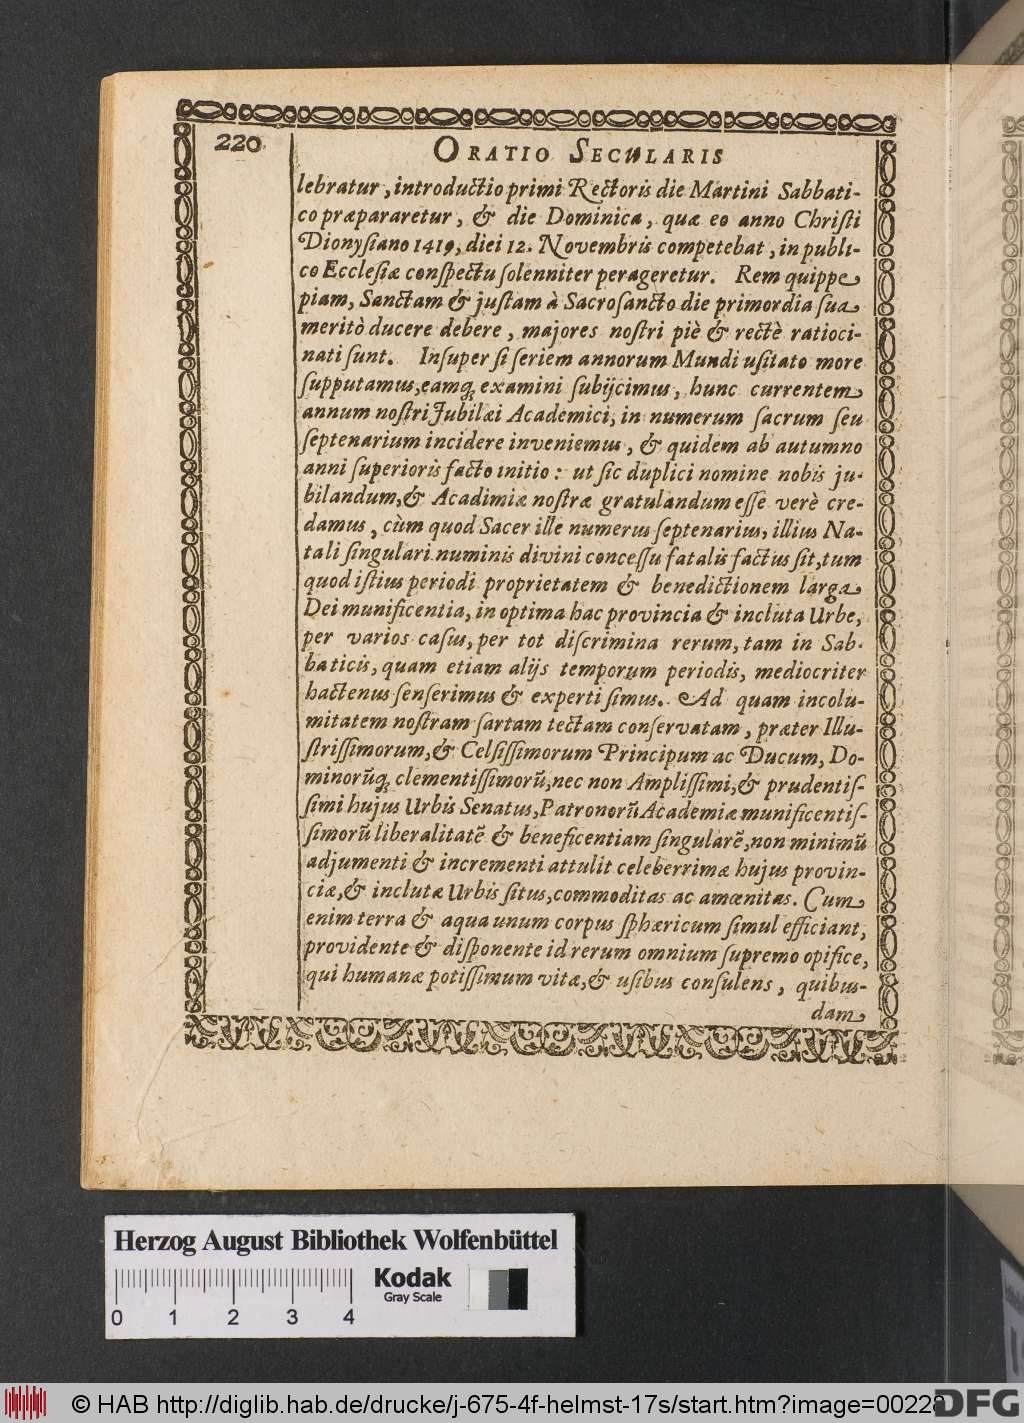 220
ORATIO SECULARIS
lebratur, introductio primi Rectoris die Martini Sabbati-
co præpararetur, & die Dominica, quæ eo anno Christi
Dionysiano 1419, diei 12. Novembris competebat, in publi-
co Ecclesiæ conspectu solenniter perageretur. Rem quippe
piam, Sanctam & justam à Sacrosancto die primordia sua
meritò ducere debere, majores nostri piè & rectè ratioci-
nati sunt. Insuper si seriem annorum Mundi usitato more
supputamus, eamq; examini subijcimus, hunc currentem
annum nostri Jubilæi Academici, in numerum sacrum seu
septenarium incidere inveniemus, & quidem ab autumno
anni superioris facto initio: ut sic duplici nomine nobis ju-
bilandum, & Acadimiæ nostræ gratulandum esse verè cre-
damus, cùm quod Sacer ille numerus septenarius, illius Na-
tali singulari numinis divini concessu fatalis factus sit, tum
quod istius periodi proprietatem & benedictionem larga
Dei munificentia, in optima hac provincia & incluta Urbe,
per varios casus, per tot discrimina rerum, tam in Sab-
baticis, quam etiam alijs temporum periodis, mediocriter
hactenus senserimus & experti simus. Ad quam incolu-
mitatem nostram sartam tectam conservatam, præter Illu-
strissimorum, & Celsissimorum Principum ac Ducum, Do-
minorũq; clementissimorũ, nec non Amplissimi, & prudentis-
simi hujus Urbis Senatus, Patronorũ Academiæ munificentis-
simorũ liberalitatẽ & beneficentiam singularẽ, non minimũ
adjumenti & incrementi attulit celeberrimæ hujus provin-
ciæ, & inclutæ Urbis situs, commoditas ac amœnitas. Cum
enim terra & aqua unum corpus sphæricum simul efficiant,
providente & disponente id rerum omnium supremo opifice,
qui humanæ potissimum vitæ, & usibus consulens, quibus-
dam
Herzog August Bibliothek Wolfenbüttel
Kodak
Gray Scale
0 1 2 3 4
© HAB http://diglib.hab.de/drucke/j-675-4f-helmst-17s/start.htm?image=00228
DFG